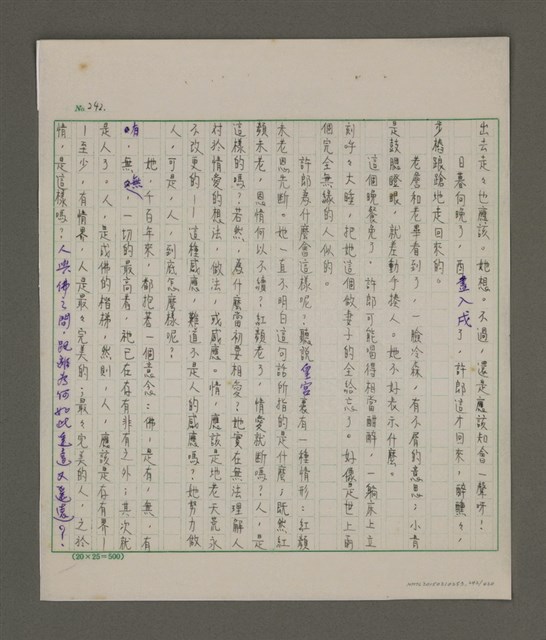 No. 242.
出去走々也應該,她想。不過,還是應該知會一聲呀!
日暮向晚了,酉盡入戌了,許郎這才回來,醉醺々,
步樁踉蹌地走回來的。
老詹和老畢看到了,一臉冷森,有不屑的意思;小青
是鼓腮瞪眼,就差動手揍人。她不好表示什麼。
這個晚餐免了。許郎可能喝得相當酣酣,一躺床上立
刻呼々大睡,把她這個做妻子的全給忘了。好像是世上兩
個完全無緣的人似的。
許郎為什麼會這樣呢?聽說皇宮裏有一種情形:紅顏
未老恩先斷。她一直不明白這句話所指的是什麼;既然紅
顏未老,恩情何以不續?紅顏老了,情愛就斷嗎?人,是
這樣的嗎?若然,為什麼當初要相愛?她實在無法理解人
對於情愛的想法,做法,或感應。情,應該是地老天荒永
不改更的——這種感應,難道不是人的感應嗎?她努力做
人,可是,人,到底怎麼樣呢?
她,千百年來,都抱著一個意念:佛,是有,無,有
有,無無,一切的最高者,祂已在存有非有之外;其次就
是人了。人,是成佛的楷梯,然則,人,應該是存有界—
—至少,有情界,人是最々完美的;最々完美的人,之於
情,是這樣嗎?人與佛之間,距離為何如此遙遠又遙遠?
(20×25=500)